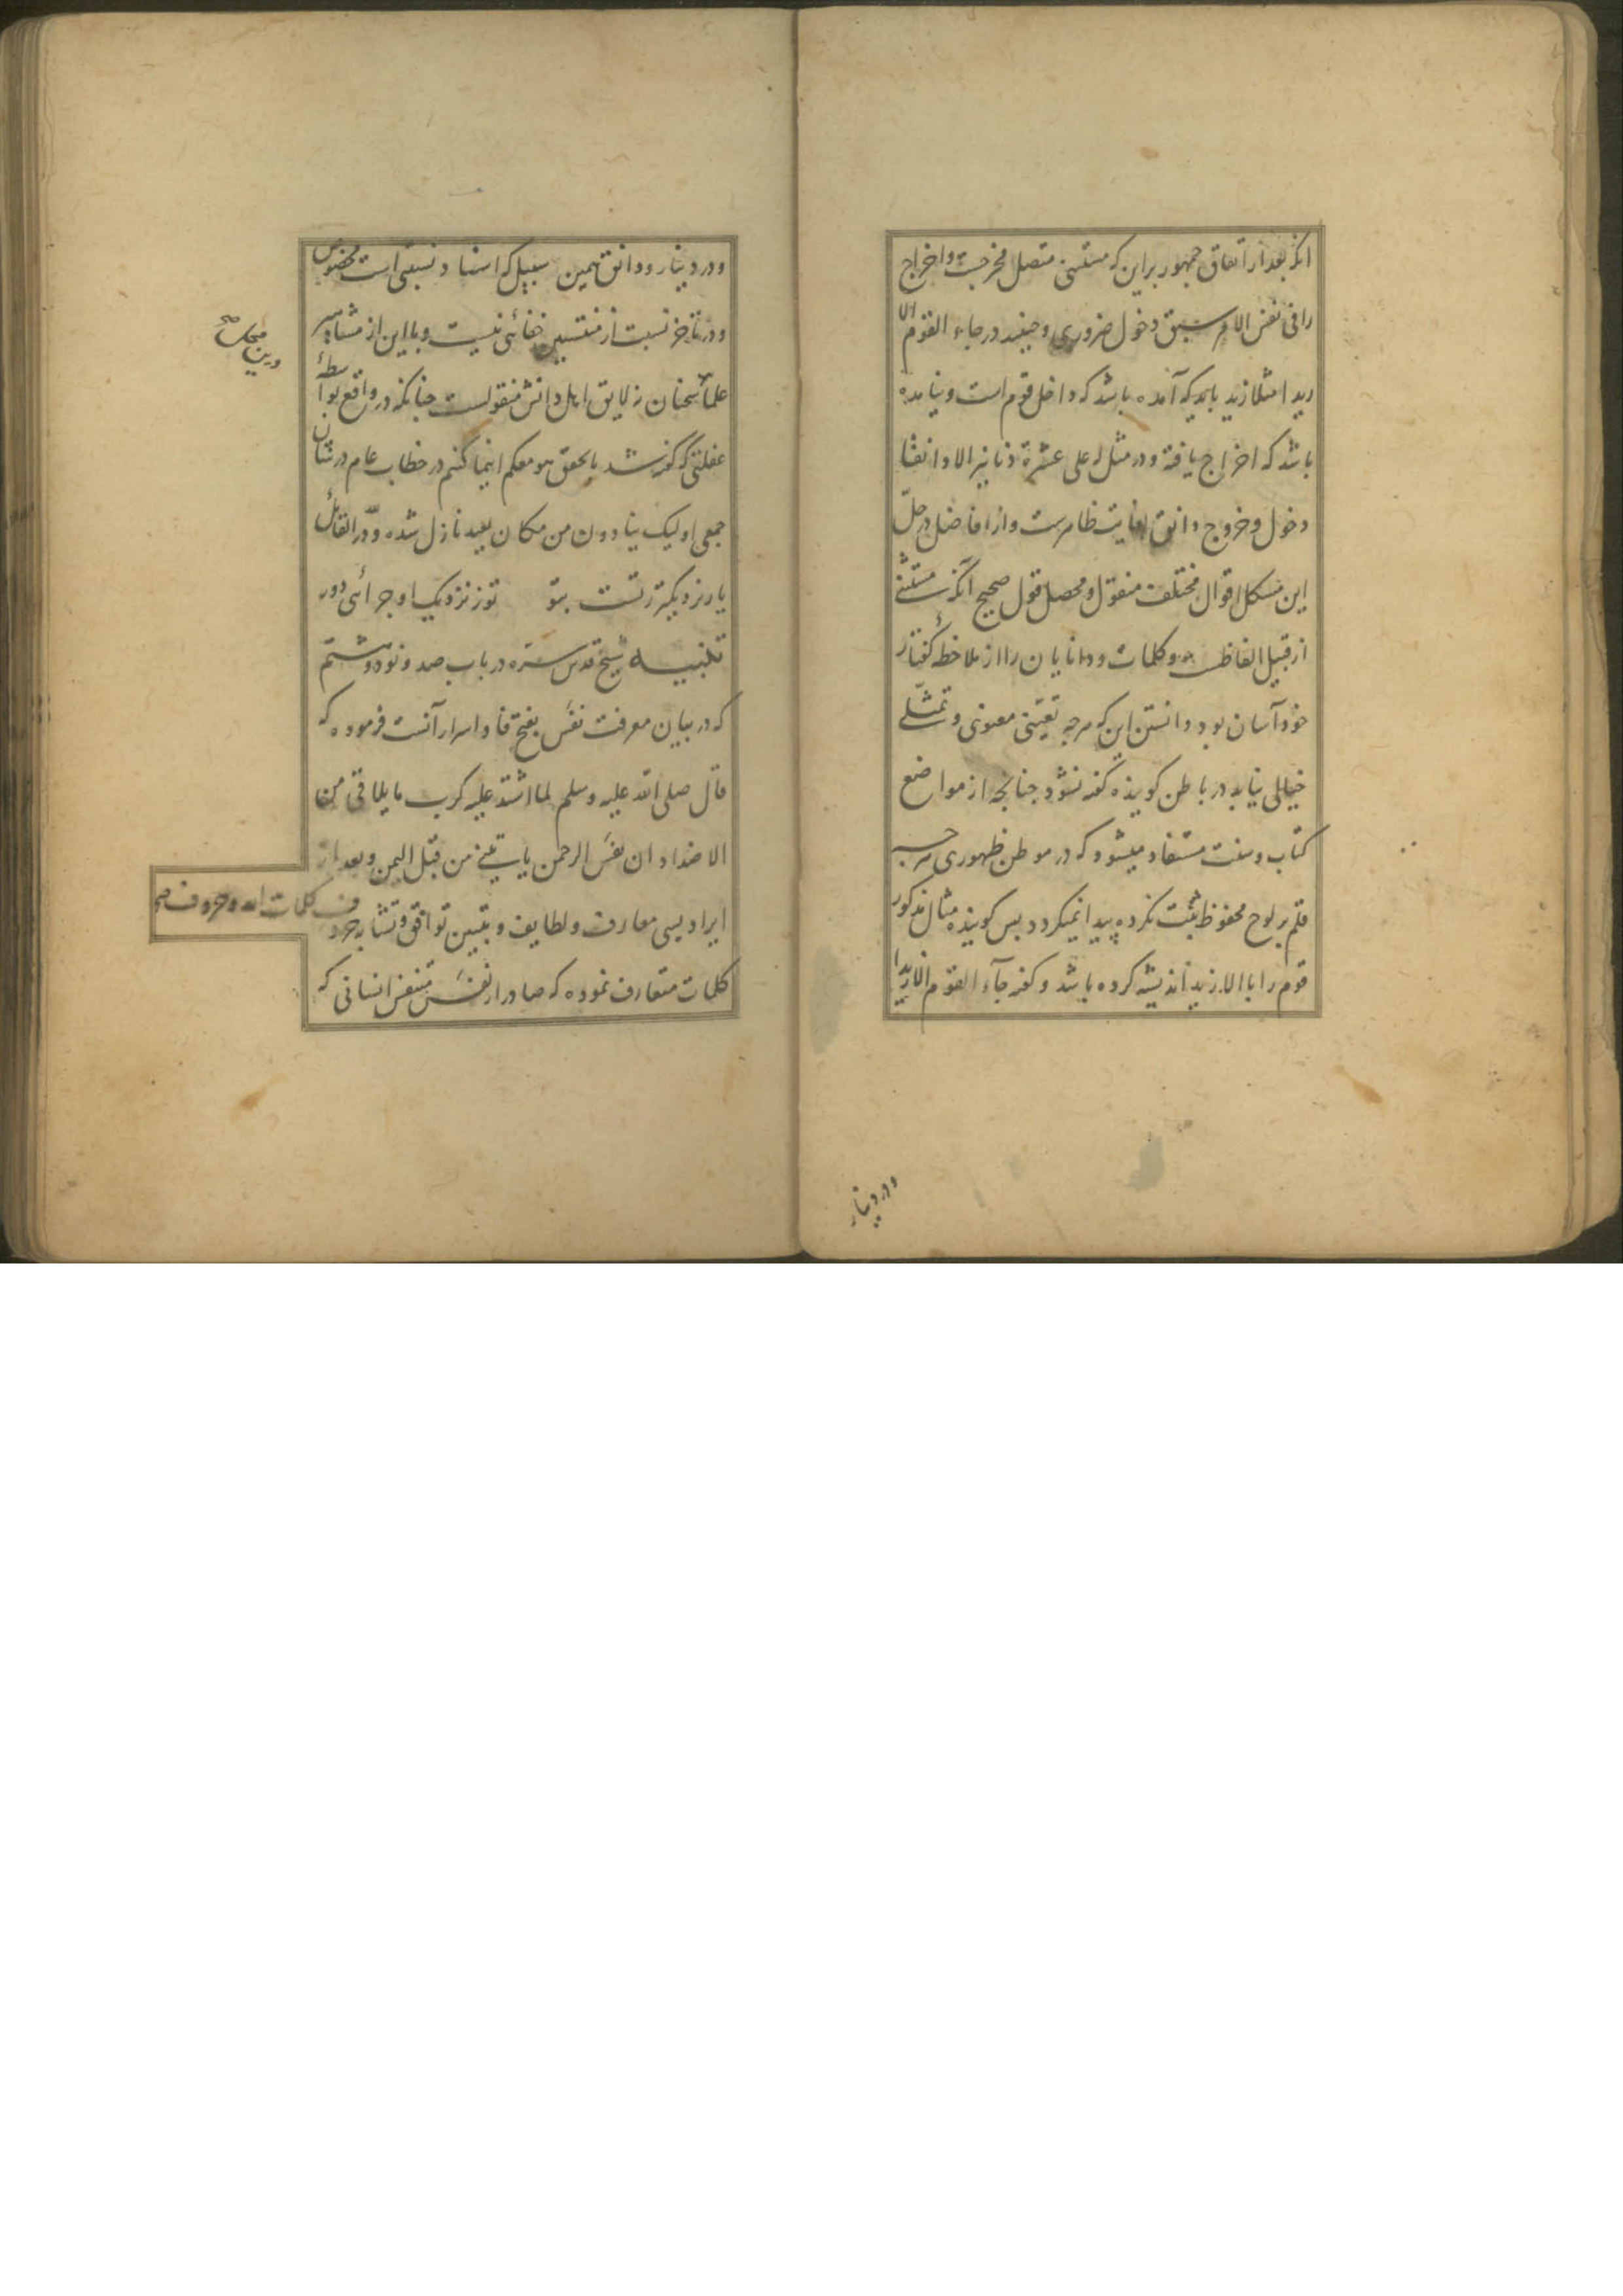 آنکه بعد از اتفاق جمهور بر این که مستثنی متصل مخرجست و اخراج
را فی نفس الامر سبق دخول ضروری و حینئذ در جاء القوم الا
زیدا مثلا زید باید که آمده باشد که داخل قوم است و نیامده
باشد که اخراج یافته و در مثل له علی عشرة دنانیر الا دانقا
دخول و خروج دانق بغایت ظاهرست و از افاضل در حلّ
این مشکل اقوال مختلف منقول و محصل قول صحیح آنکه مستثنی
از قبیل الفاظ و کلمات و دانایان را از ملاحظهٔ گفتار
خود آسان بود دانستن این که هرچه تعیّنی معنوی و تمثّلی
خیالی نیابد در باطن گوینده گفته نشود چنانچه از مواضع
کتاب و سنت مستفاد میشود که در موطن ظهوری هرچه
قلم بر لوح محفوظ ثبت نکرده پیدا نمیکردد پس گوینده مثال مذکور
قوم را با الا زید اندیشه کرده باشد و گفته جآء القوم الا زیدا
ودر دینار
ودر دینار و دانق بهمین سبیل که اسناد نسبتی است مخصوص
ودر تاخر نسبت از منتسبین خفائی نیست و با این از مشاهیر
علما سخنان نه لایق اهل دانش منقولست چنانکه در واقع بواسطهٔ
غفلتی که گفته شد بالحق هو معکم اینما کنتم در خطاب عام در شان
جمعی اولیک ینادون من مکان بعید نازل شده و لله در القائل
یار نزدیکترتست بتو تو ز نزدیک او چرائی دور
تنبیه شیخ قدس سره در باب صد و نود و هشتم
که در بیان معرفت نفَس بفتح فا و اسرار آنست فرموده که
قال صلی الله علیه وسلم لما اشتد علیه کرب ما یلاقی من
الاضداد ان نفَس الرحمن یاتینی من قبل الیمن و بعد از
ایراد بسی معارف و لطایف و تبیین توافق و تشابه حروف کلمات الله و حروف صح
کلمات متعارف نموده که صادر از نفَس متنفس انسانی که